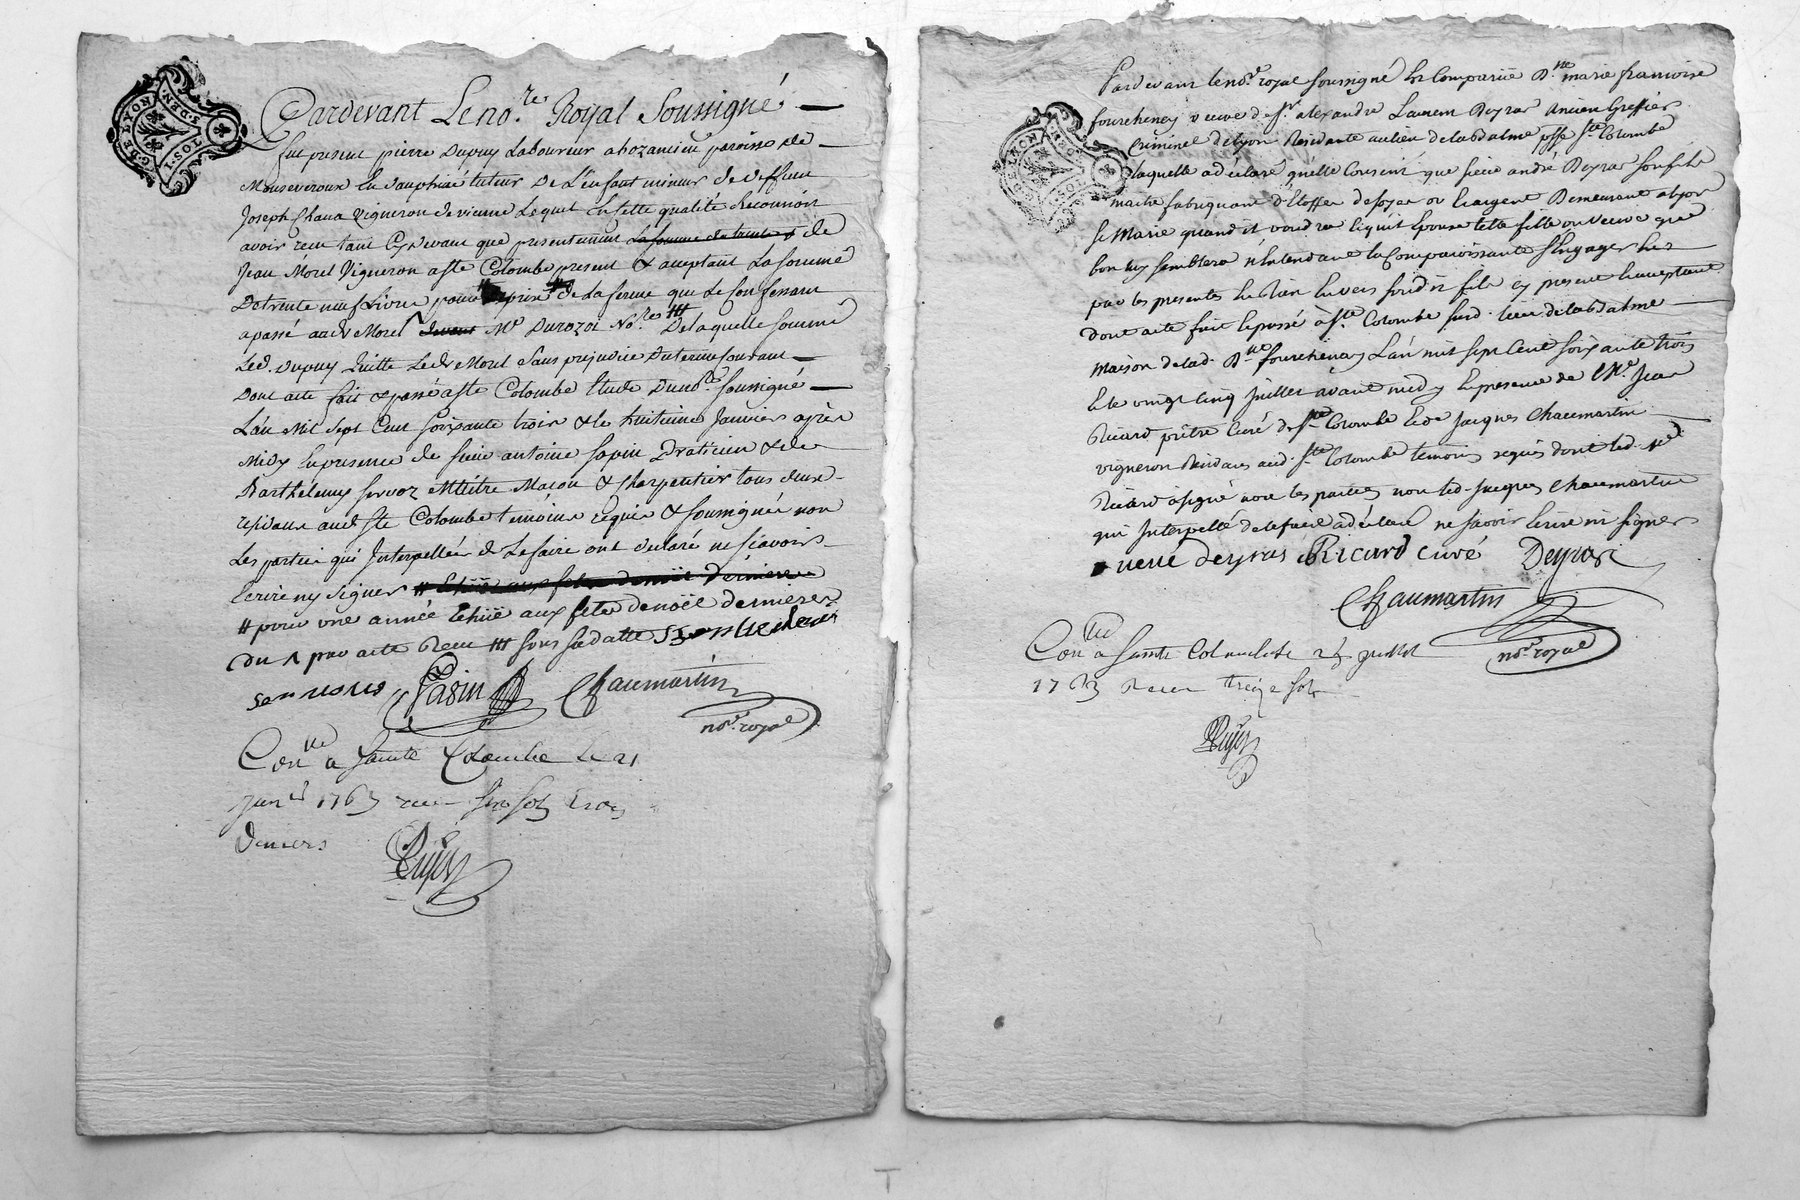 GEN.DE LYON
I.SOL
Pardevant Le no.re Royal Soussigné
fut present pierre Dupuy Laboureur a bozancieu paroisse de
Monseveroux En dauphiné tuteur De L'enfant mineur de deffunt
Joseph Chava Vigneron de vienne Lequel En Cette qualité Reconnoit
avoir receu tant Cy devant que presentement La somme de trente de
Jean Morel Vigneron a ste Colombe present & acceptant La somme
De trente neuf Livre pour prix # de La ferme que Le Confessant
a passé aud. Morel devant Me Durozoi No.re ### De laquelle somme
Led. Dupuy Quitte Led. Morel Sans prejudice Du terme Courant
Dont acte fait & passé a ste Colombe Etude Du no.re soussigné
L'an Mil Sept Cent Soixante trois & le huitieme Janvier après
Midy En presence de sieur antoine sapin Praticien & de
Barthélemy servoz Maître Macon & Charpentier tous deux
residans aud. ste Colombe temoins requis & soussignés non
Les parties qui Interpellées de Le faire ont declaré ne sçavoir
Ecrire ny signer # Echüe aux fetes de noël derniere
# pour une année Echüe aux fetes de noël dernieres
Du Λ par acte Receu ### sous sa datte
servozus Sapin Chaumartin
no.re royal
Con.llé a Sainte Colombe Le 21
Janv.er 1763 receu six sols trois
deniers
GEN.DE LYON
I.SOL
Pardevant le no.re royal soussigné est Comparüe D.lle marie francoise
fourcheney veuve de s.r alexandre Laurent Deyras Ancien Greffier
Criminel de Lyon Residante au lieu de la Balme psse ste Colombe
laquelle a déclaré qu'elle Consent que sieur andré Deyras son fils
maitre fabriquant d'Etoffes de soye or et argent Demeurant a lyon
se Marie quand il voudra et qu'il Epouse telle fille ou veuve que
bon luy semblera n'Entendant la Comparoissante s'Engager En
par les presentes En Rien Envers sond.it fils cy present Et acceptant
dont acte fait et passé à ste Colombe sud. lieu de la Balme
maison de lad. D.lle fourcheney L'an mil sept Cent soixante trois
et le vingt cinq juillet avant midy En presence de M.re Jean
Ricard prêtre Curé de ste Colombe et de Jacques Chaumartin
vigneron Residans aud. ste Colombe temoins requis dont led. s.r
Ricard a signé avec les parties non led. Jacques Chaumartin
qui Interpellé de le faire a déclaré ne savoir Ecrire ni signer
veuve deyras Ricard curé Deyras
Chaumartin
no.re royal
Con.llé a Sainte Colombe le 25 juillet
1763 Receu treize sols